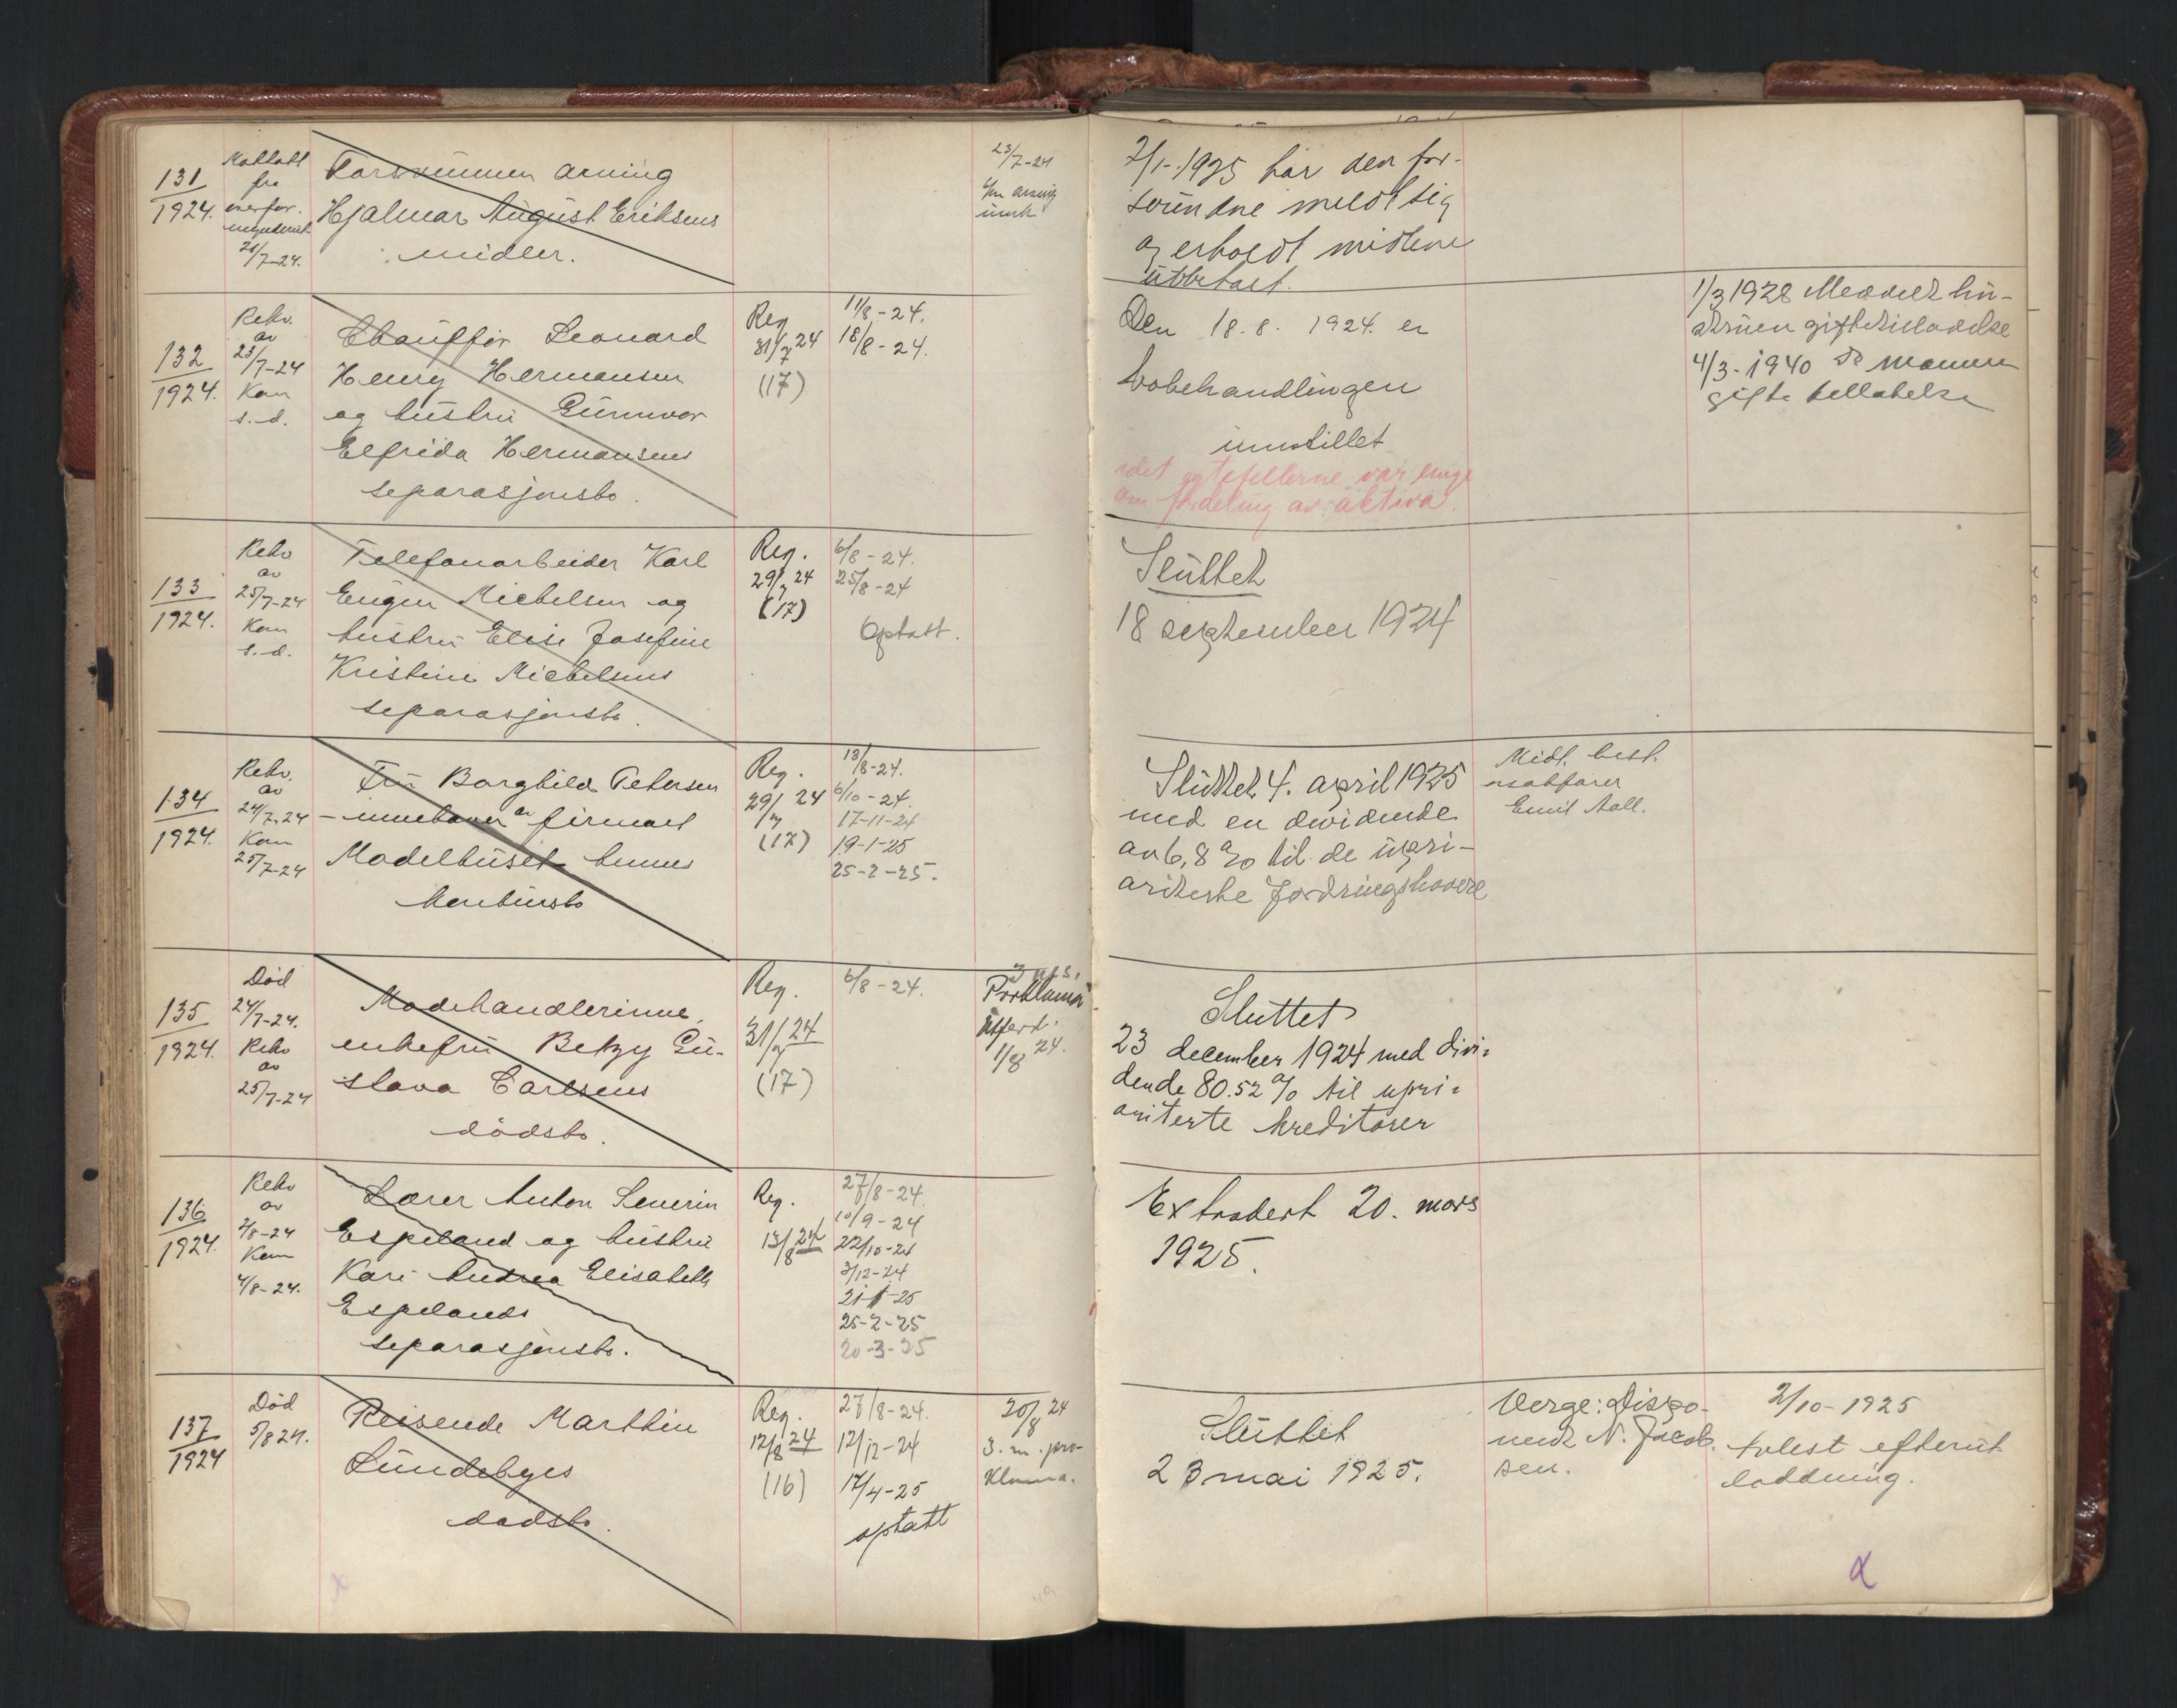 131
1924.
Mottatt
fra
overfor.
21/7-24.
Forsvunnen arving
Hjalmar August Eriksens
midler.
23/7-24
2/1-1925 har den for-
svundne meldt sig
og erholdt midlene
utbetalt.
132
1924.
Rekv.
av
23/7-24
Kom
s.d.
Chauffør Leonard
Henry Hermansen
og hustru Gunnvor
Elfrida Hermansens
separasjonsbo.
Reg
31/7 24
(17)
11/8-24.
18/8-24.
Den 18.8. 1924. er
bobehandlingen
innstillet
idet egtefellerne var enige
om fordeling av aktiva.
1/3 1928 Meddelt hu-
struen giftetilladelse
4/3-1940 do mannen
gifte tillatelse
133
1924.
Rekv
av
25/7-24
Kom
s.d.
Telefonarbeider Karl
Eugen Michelsen og
hustru Elise Josefine
Kristine Michelsens
separasjonsbo.
Reg.
29/7 24
(17)
6/8-24.
25/8-24
Optatt.
Sluttet
18 september 1924
134
1924.
Rekv.
av
24/7-24
Kom
25/7-24
Fru Borghild Petersen
- innehaver av firmaet
Modelhuset hennes
konkursbo
Reg.
29/7 24
(17)
18/8-24.
6/10-24.
17-11-24
19-1-25
25-2-25.
Sluttet 4. april 1925
med en dividende
av 6,8 % til de upri-
oriterte fordringshavere
Midl. best.
o.sakfører
Emil Aall.
135
1924.
Død
24/7-24.
Rekv
av
25/7-24
Motehandlerinne,
enkefru Betzy Gu-
stava Carlsens
dødsbo.
Reg.
31/7 24
(17)
6/8-24.
3 ms.
Proklama
utferd.
1/8 24.
Sluttet
23 december 1924 med divi-
dende 80.52 % til upri-
oriterte kreditorer
136
1924.
Rekv
av
2/8-24
Kom
4/8-24.
Lærer Anton Severin
Espeland og hustru
Kari Andrea Elisabeth
Espelands
separasjonsbo.
Reg.
13/8 24
27/8-24.
10/9-24
22/10-24
3/12-24
21-1-25
25-2-25
20-3-25
Extradert 20. mars
1925.
137
1924
Død
5/8 24.
Reisende Marthin
Lundebyes
dødsbo.
Reg.
12/8 24
(16)
27/8-24.
12/12-24
17/4-25
optatt
20/8 24
3. m. pro-
klama.
Sluttet
23 mai 1925.
Verge: Dispo-
nent N. Jacob-
sen.
2/10-1925
avlest efterut
loddning.